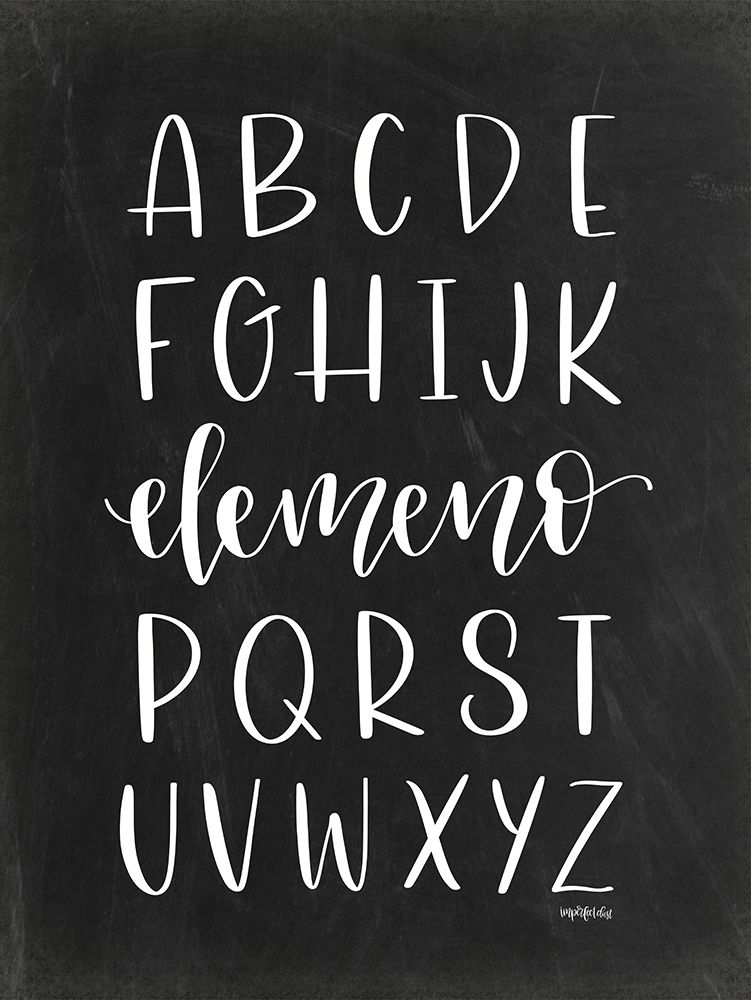 A B C D E
F G H I J K
elemeno
P Q R S T
U V W X Y Z
imperfect dust